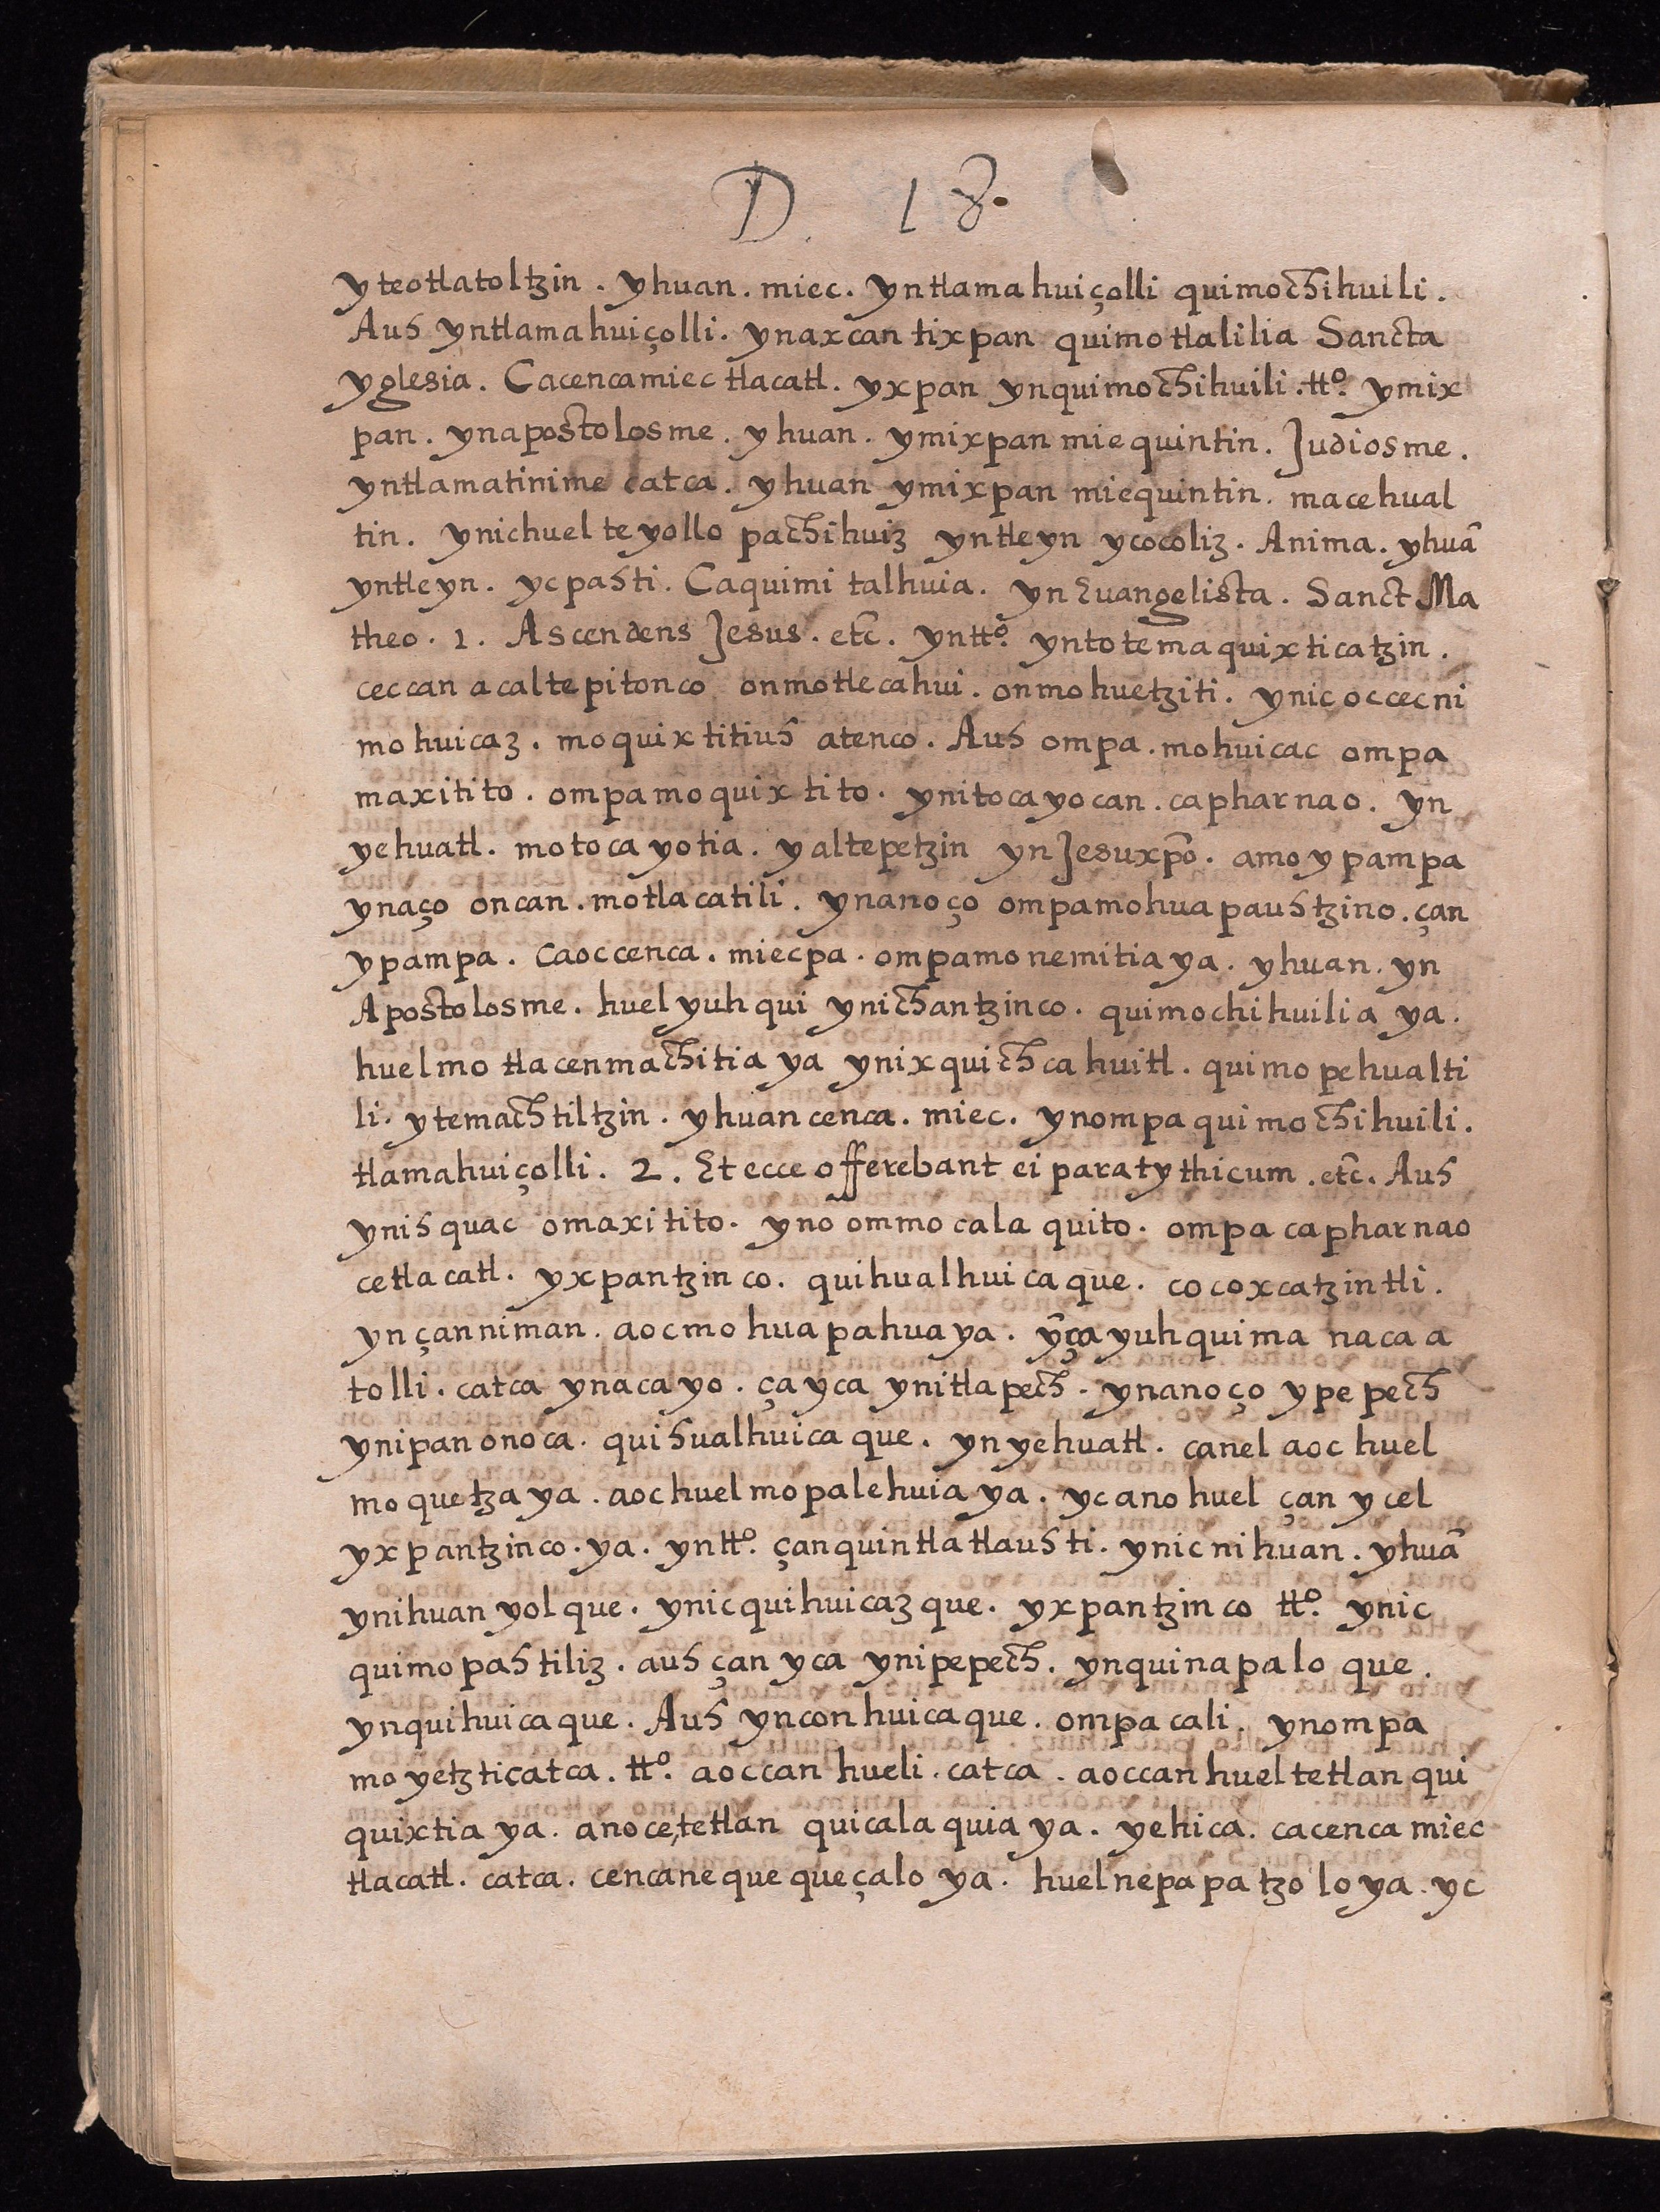 D. 18.
yteotlatoltzin. yhuan. miec. yntlamahuiçolli quimochihuili.
Auh yntlamahuiçolli. ynaxcan tixpan quimotlalilia Sancta
yglesia. Cacencamiec tlacatl. yxpan ynquimochihuili. tto. ymix
pan. ynapostolosme. yhuan. ymixpan miequintin. Judiosme.
yntlamatinime catca. yhuan ymixpan miequintin. macehual
tin. ynichuel teyollo pachihuiz yntleyn ycocoliz. Anima. yhuā
yntleyn. ycpahti. Caquimi talhuia. yn Euangelista. Sanct Ma
theo. 1. Ascendens Jesus. etc̄. yntto. yntotemaquixticatzin.
ceccan acaltepitonco onmotlecahui. onmohuetziti. ynic occecni
mohuicaz. moquixtitiuh atenco. Auh ompa. mohuicac ompa
maxitito. ompamoquixtito. ynitocayocan. capharnao. yn
yehuatl. motocayotia. yaltepetzin yn Jesuxpō. amo ypampa
ynaço oncan. motlacatili. ynanoço ompamohuapauhtzino. çan
ypampa. caoccenca. miecpa. ompamonemitiaya. yhuan. yn
Apostolosme. huel yuhqui ynichantzinco. quimochihuilia ya.
huelmo tlacenmachitia ya ynixquichcahuitl. quimopehualti
li. ytemachtiltzin. yhuan cenca. miec. ynompa quimochihuili.
tlamahuiçolli. 2. Et ecce offerebant ei paratythicum. etc̄. Auh
ynihquac omaxitito. yno ommocalaquito. ompa capharnao
cetlacatl. yxpantzinco. quihualhuicaque. cocoxcatzintli.
yn çanniman. aocmohuapahuaya. ȳça yuhquima naca a
tolli. catca ynacayo. çayca ynitlapech. ynanoço ypepech
ynipan onoca. quihualhuicaque. ynyehuatl. canel aoc huel
moquetzaya. aochuelmopalehuia ya. ycanohuel çan ycel
yxpantzinco. ya. yntto. çanquintlatlauhti. ynicnihuan. yhuā
ynihuanyolque. ynicquihuicazque. yxpantzinco tto. ynic
quimopahtiliz. auh çan yca ynipepech. ynquinapaloque.
ynquihuicaque. Auh ynconhuicaque. ompacali. ynompa
moyetzticatca. tto. aoccan hueli. catca. aoccanhueltetlan qui
quixtia ya. anoce,tetlan quicalaquia ya. yehica. cacenca miec
tlacatl. catca. cencanequequeçalo ya. huelnepapatzoloya. yc